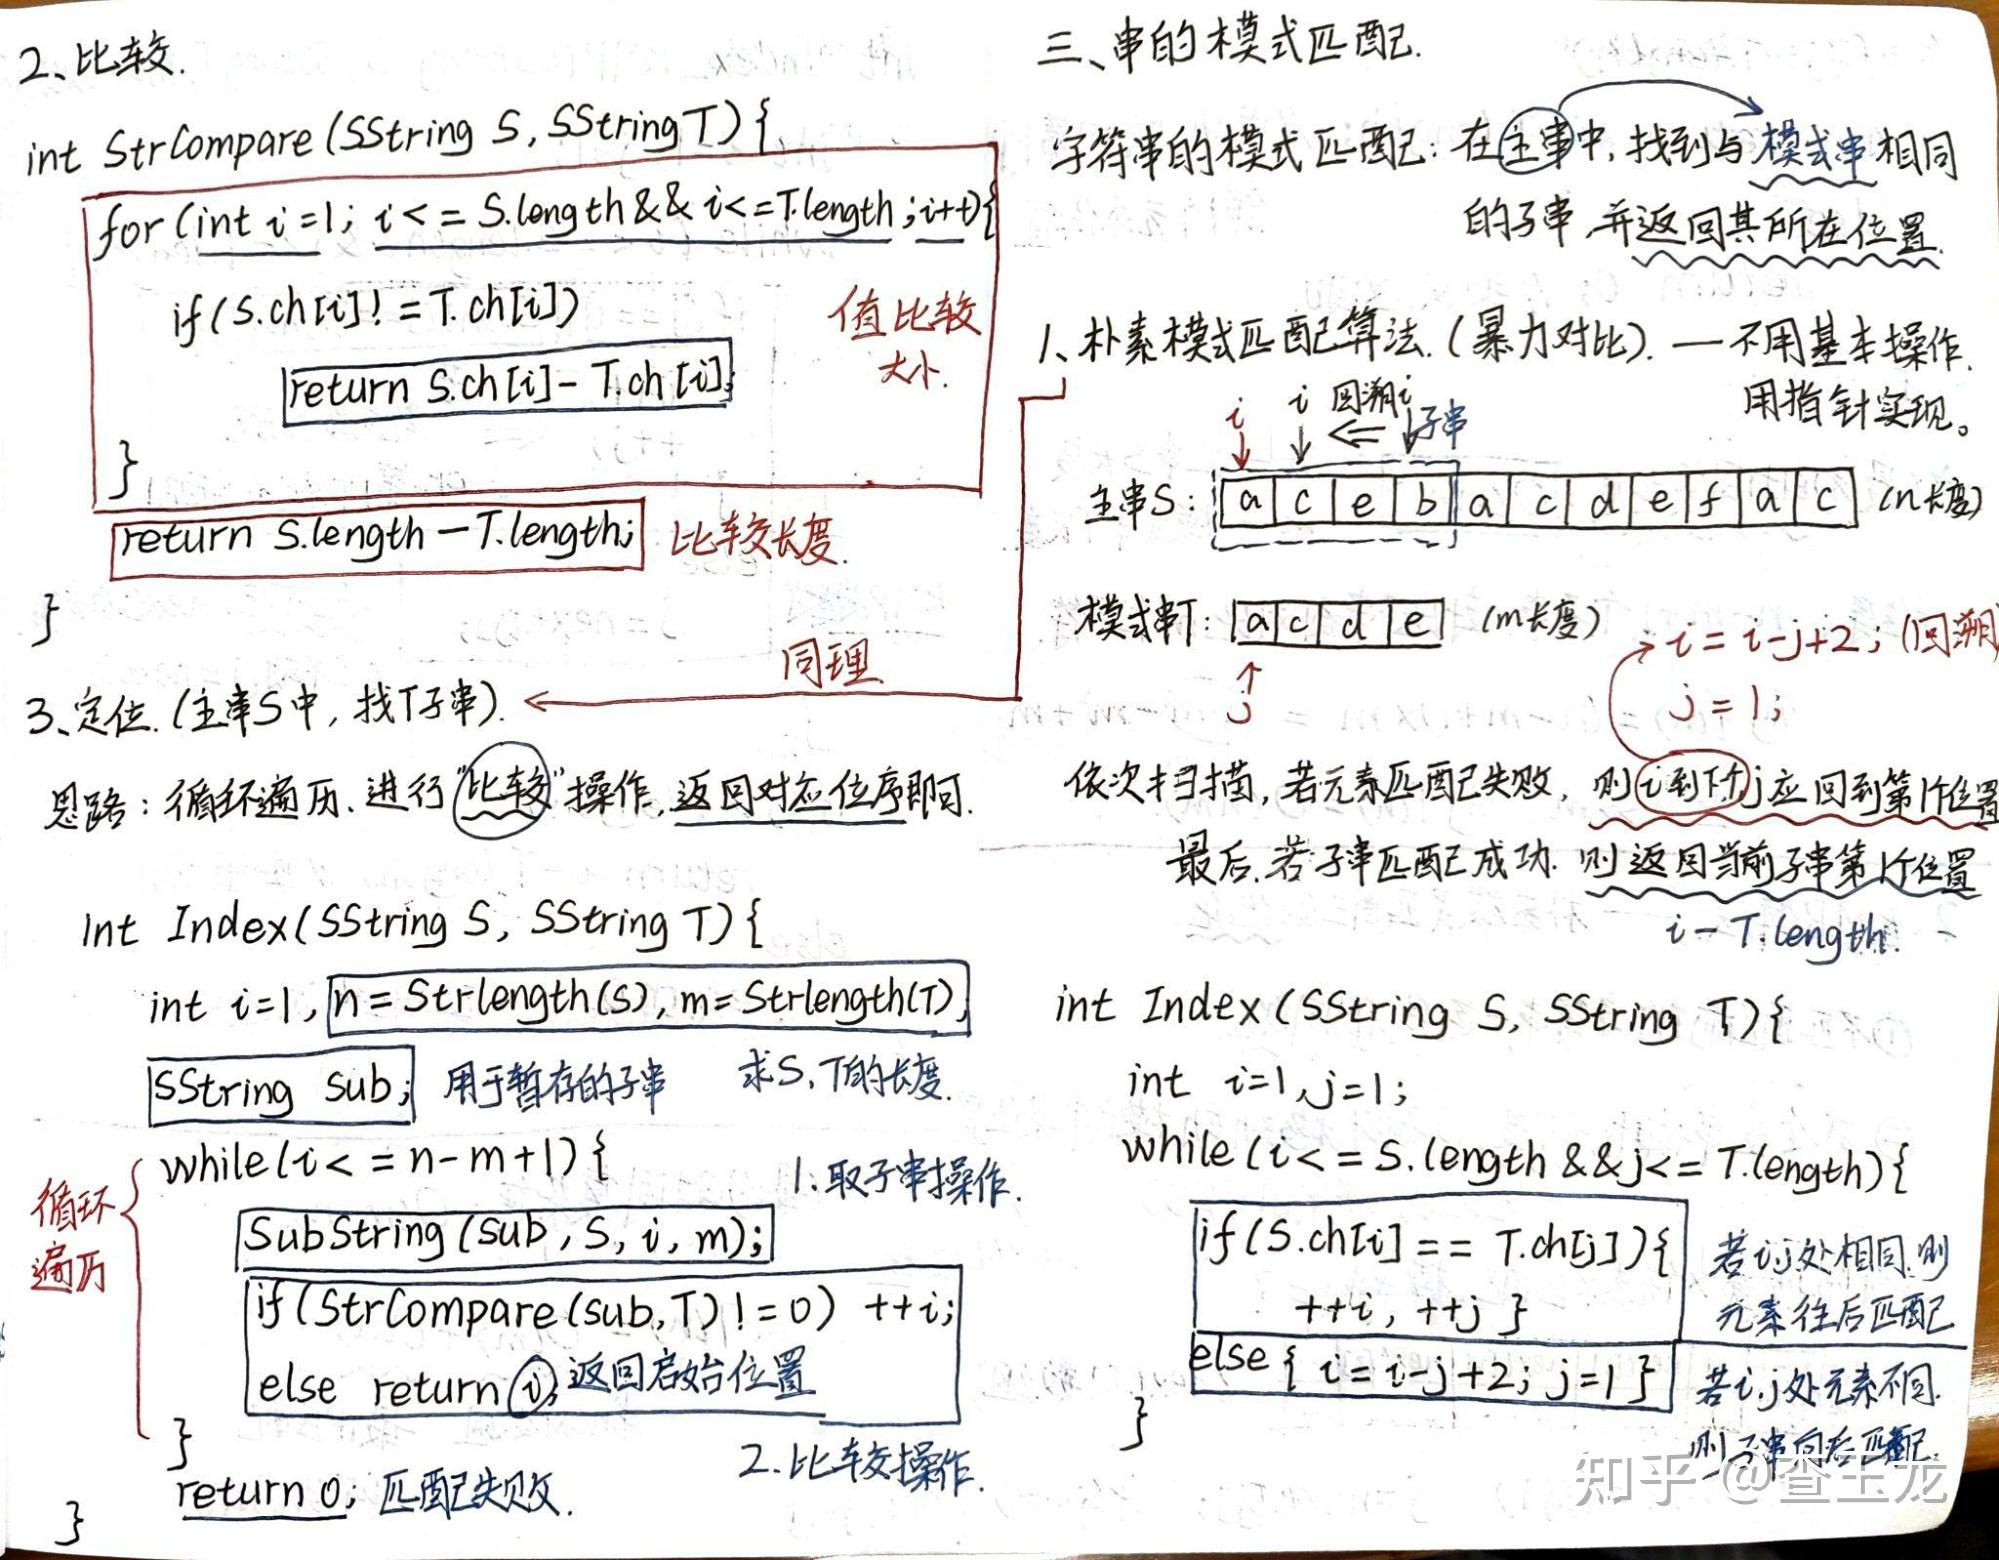 2、比较.
int StrCompare(SString S, SString T){
for(int i=1; i<=S.length&&i<=T.length;i++){
if(S.ch[i]!=T.ch[i])
值比较
return S.ch[i]-T.ch[i];
大小.
}
return S.length-T.length;
比较长度.
}
同理
3、定位.(主串S中, 找T子串).
思路: 循环遍历、进行"比较"操作,返回对应位序即可.
int Index(SString S, SString T){
int i=1, n=Strlength(S), m=Strlength(T),
SString sub; 用于暂存的子串 求S,T的长度.
while(i<=n-m+1){
1.取子串操作.
循环
遍历
SubString(sub, S, i, m);
if(StrCompare(sub,T)!=0) ++i;
else return i; 返回启始位置
}
2.比较操作.
return 0; 匹配失败.
}
三、串的模式匹配.
字符串的模式匹配: 在主串中, 找到与模式串相同
的子串,并返回其所在位置.
1、朴素模式匹配算法.(暴力对比). 一不用基本操作.
用指针实现。
i i 回溯i
子串
主串S: a c e b a c d e f a c (n长度)
模式串T: a c d e (m长度)
j
i=i-j+2; (回溯)
j=1;
依次扫描, 若元素匹配失败, 则i到下个,j应回到第1个位置
最后.若子串匹配成功. 则返回当前子串第1个位置
i-T.length.
int Index(SString S, SString T){
int i=1,j=1;
while(i<=S.length&&j<=T.length){
if(S.ch[i]==T.ch[j]){
++i, ++j }
若i,j处相同.则
元素往后匹配
else{ i=i-j+2; j=1 }
若i,j处元素不同.
则子串向后匹配.
}
知乎 @查玉龙